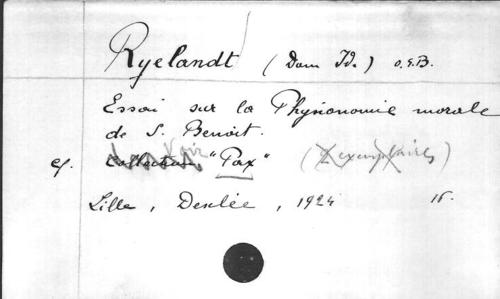 Ryelandt (Dom Id.) O.S.B.
Essai sur la Physionomie morale
de S. Benoît.
cf. collection Voir "Pax" (2 exemplaires)
Lille, Desclée, 1924 16.